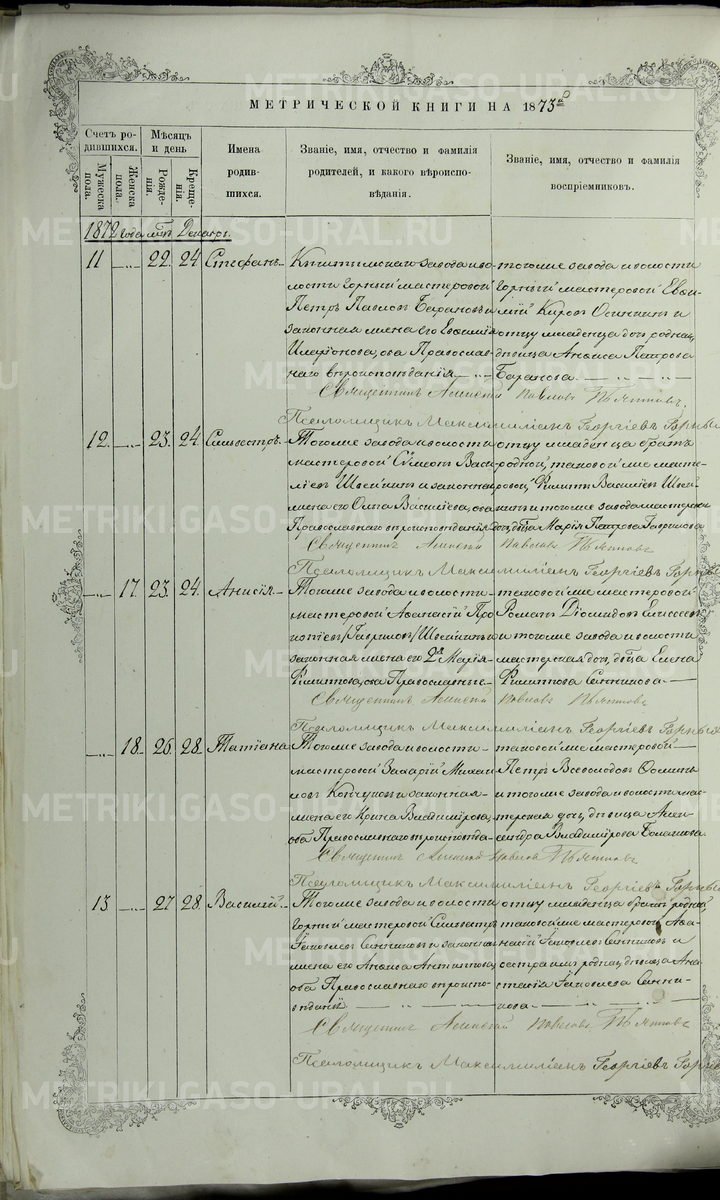 МЕТРИЧЕСКОЙ КНИГИ НА 1873й
Счетъ ро-
дившихся.
Мужеска пола.
Женска пола.
Мѣсяцъ и день
Рожде-
нія.
Креще-
нія.
Имена
родив-
шихся.
Званіе, имя, отчество и фамилія
родителей, и какого вѣроиспо-
вѣданія.
Званіе, имя, отчество и фамилія
воспріемниковъ.
1872 года мць Декабрь.
11 22. 24 Стефанъ
Кыштымскаго завода и во-
лости горный мастеровой
Петръ Павловъ Барановъ и
законная жена его Евѳимія
Иларіонова, оба Православ-
наго вѣроисповѣданія
тогоже завода и волости
горный мастеровой Евѳи-
мій Кировъ Осининъ и
отцу младенца доч родная,
дѣвица Анѳиса Петрова
Баранова
Священникъ Алексѣй Павловъ
Псаломщикъ Максимиліанъ Георгіевъ
12. 23. 24. Сильвестръ
Тогоже завода и волости
мастеровой Сѵмеонъ Васи-
ліевъ Швейкинъ и законная
жена его Ольга Василіева, оба
Православнаго вѣроисповѣданія
отцу младенца братъ
родной, таковой же масте-
ровой Филиппъ Василіевъ Швей-
кинъ и тогоже завода мастерская
доч, двца Марія Петрова Гаврилова
Священникъ Алексѣй Павловъ
Псаломщикъ Максимиліанъ Георгіевъ
17. 23. 24. Анисія
Тогоже завода и волости
мастеровой Аѳанасій Про-
копіевъ /Гавриловъ/ Швейкинъ и
законная жена его 2я Марія
Филиппова, оба Православные
таковой же мастеровой
Романъ Діомидовъ Елисеевъ
и тогоже завода и волости
мастерская доч, двца Елена
Филиппова Санникова
Священникъ Алексѣй Павловъ
Псаломщикъ Максимиліанъ Георгіевъ
18. 26. 28. Татіана
Тогоже завода и волости
мастеровой Захарій Михаи-
ловъ и законная
жена его Ирина Владимірова,
оба Православнаго вѣроисповѣда-
таковой же мастеровой
Петръ Всеволодовъ
и тогоже завода и волости мас-
терская доч, дѣвица Алек-
сандра Владимірова
Священникъ Алексѣй Павловъ
Псаломщикъ Максимиліанъ Георгіевъ
13 27 28. Василій
Тогоже завода и волости
горный мастеровой Сильвестръ
Іаковлевъ Санниковъ и законная
жена его Анѳиса Антипова,
оба Православнаго вѣроиспо-
вѣданія
отцу младенца братъ родной,
таковой же мастеровой Аѳа-
насій Іаковлевъ Санниковъ и
сестра имъ родная, дѣвица Ана-
стасія Іаковлева Санни-
кова
Священникъ Алексѣй Павловъ
Псаломщикъ Максимиліанъ Георгіевъ
METRIKI.GASO-URAL.RU